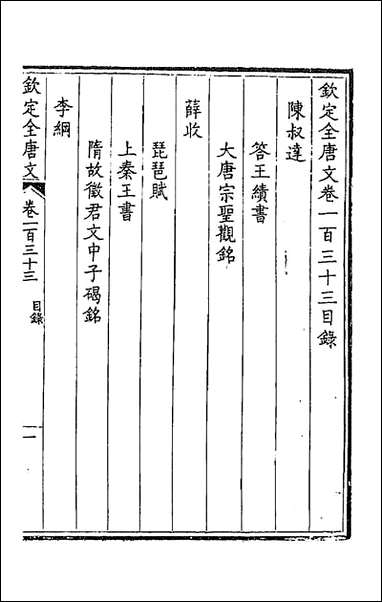 欽定全唐文卷一百三十三目錄
陳叔達
答王績書
大唐宗聖觀銘
薛收
琵琶賦
上秦王書
隋故徵君文中子碣銘
李綱
欽定全唐文
卷一百三十三
目錄
一